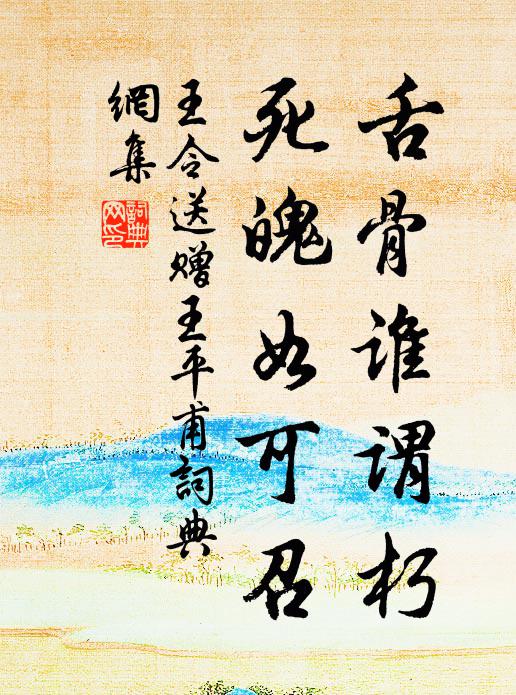 舌骨谁谓朽
死魄如可召
王令送赠王平甫詞典
網集
詞典
网印